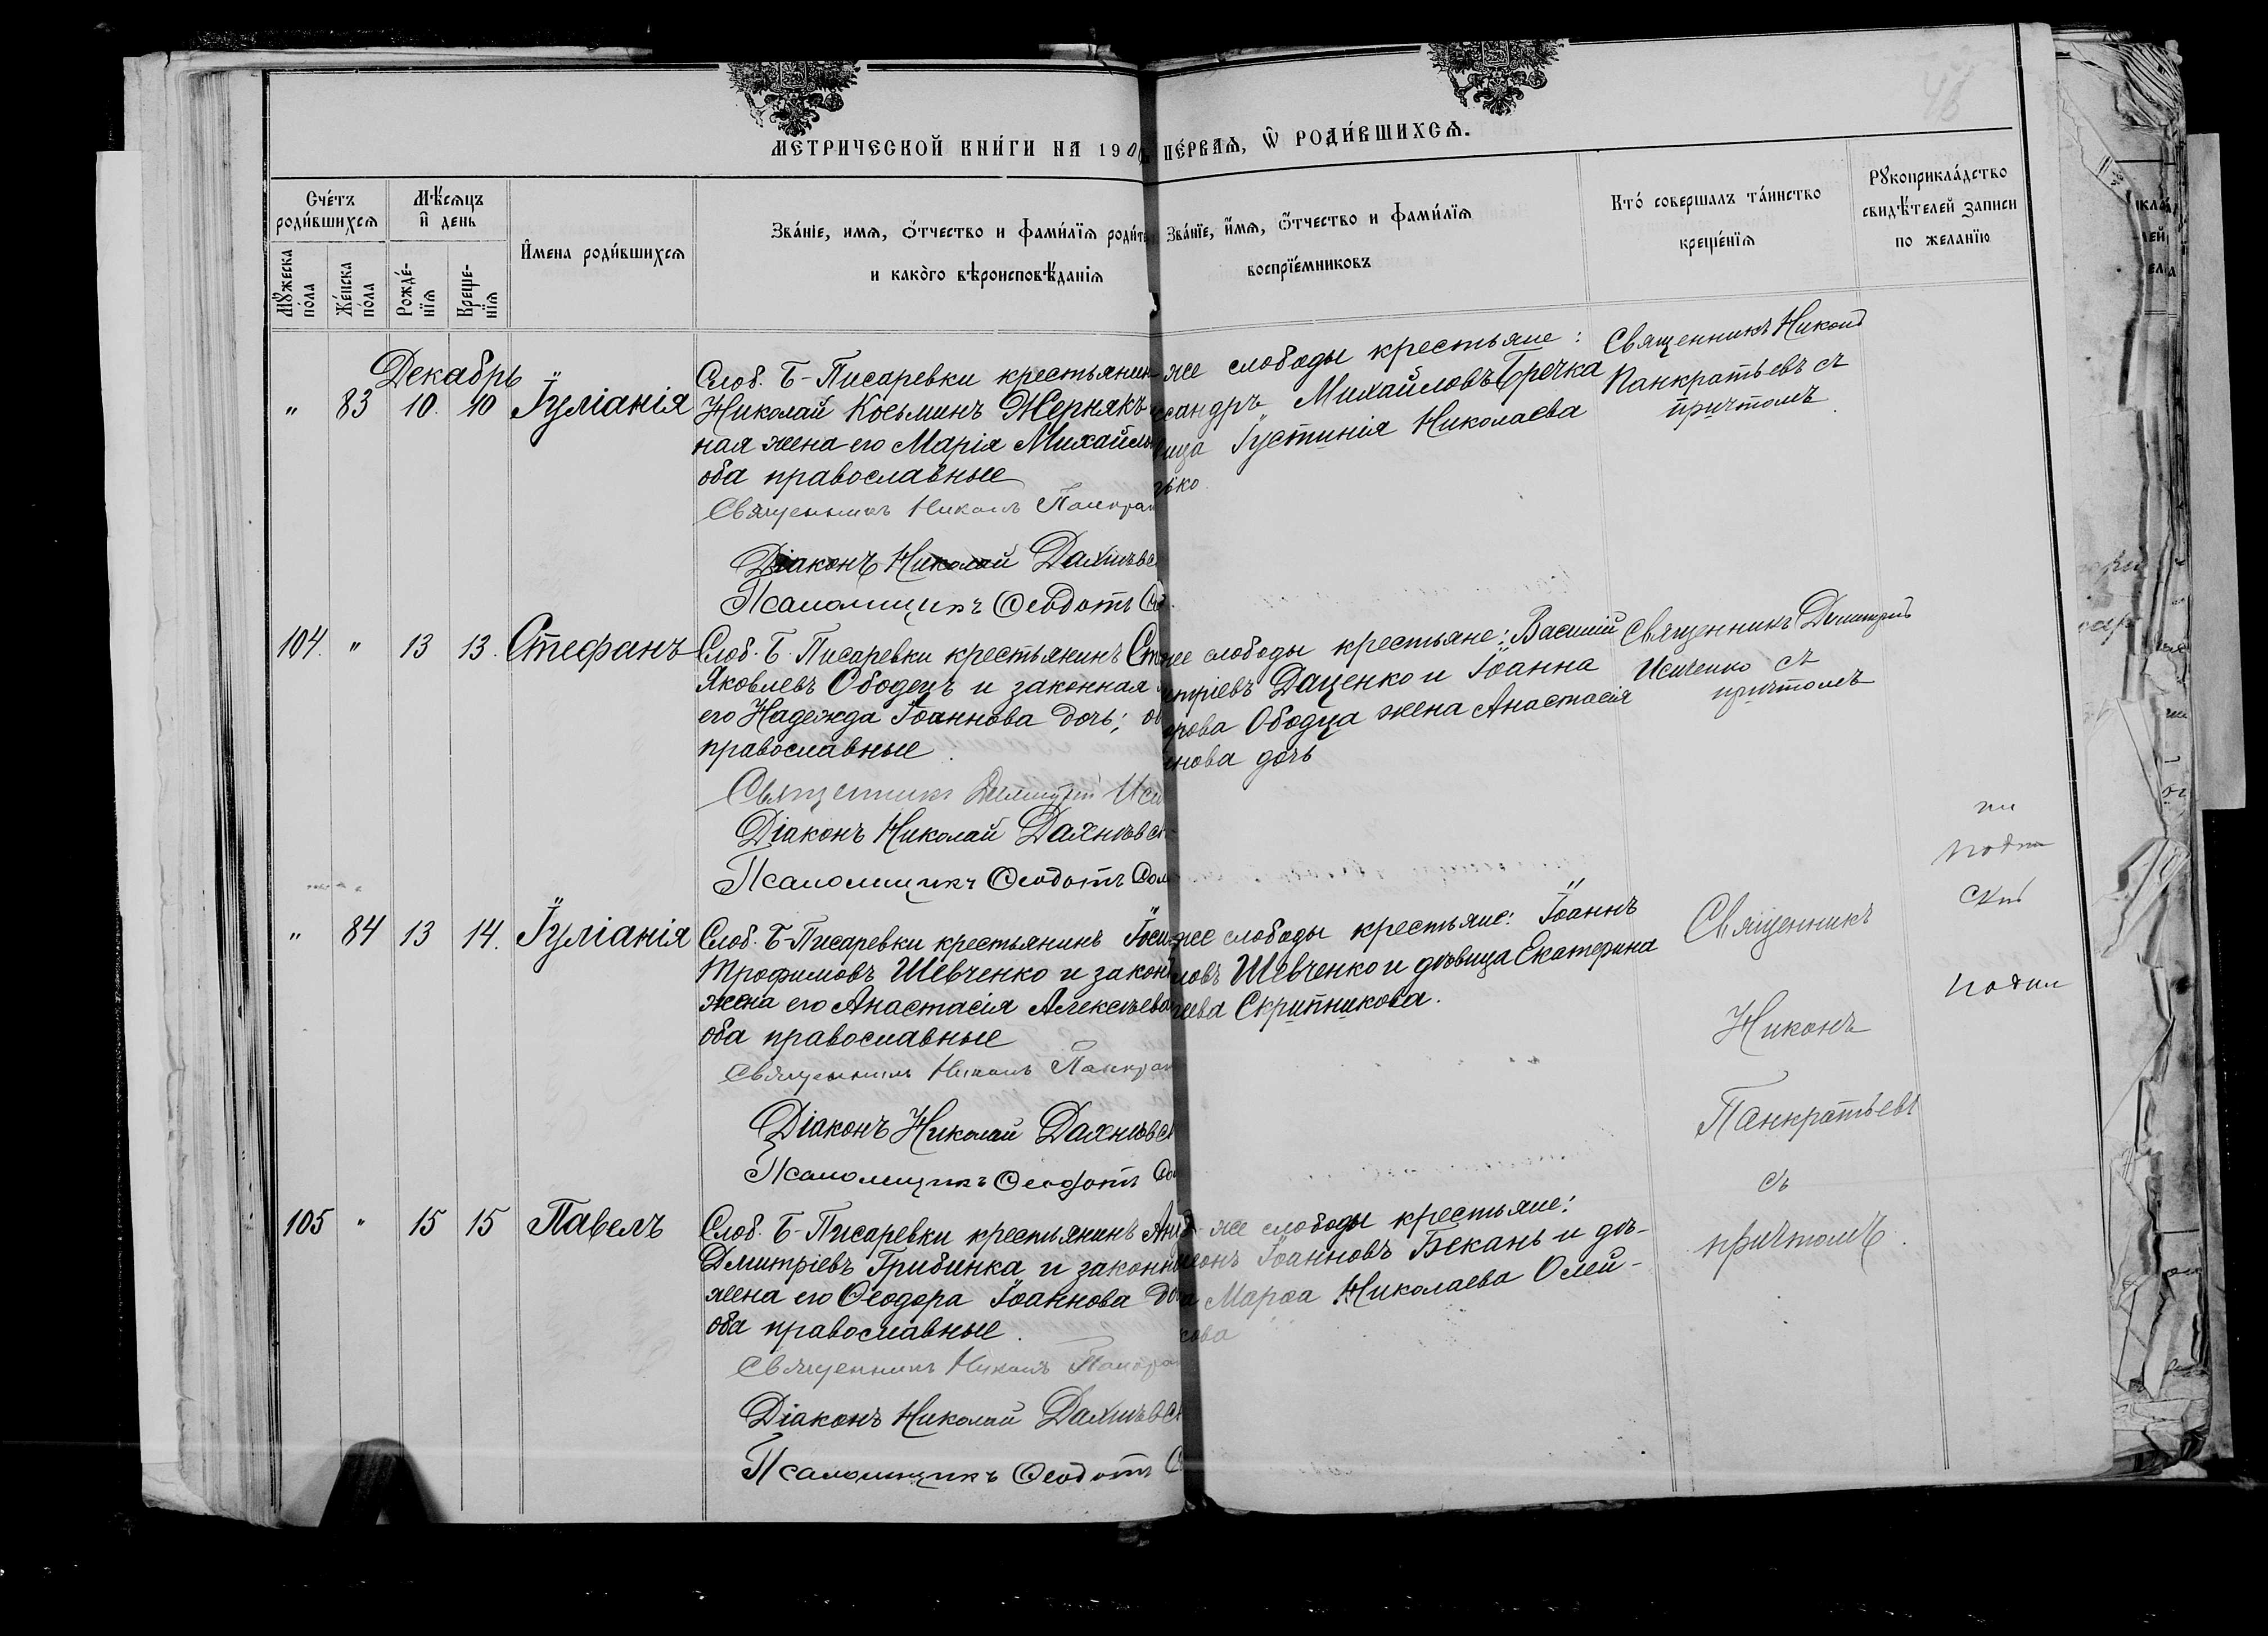 МЕТРИЧЕСКОЙ КНИ́ГИ НА 190
ПЕ́РВАѦ, Ѿ РОДИ́ВШИХСѦ.
Сче́тъ роди́вшихсѧ
Мꙋ́жеска по́ла
Же́нска по́ла
Мѣ́сѧцъ и҆ день
Рожде́-нїѧ
Креще-нїѧ
И҆мена роди́вшихсѧ
Зва́нїе, имѧ, ѻ҆́тчество и фами́лїѧ роди́те
и како̀го вѣроисповѣ́данїѧ
Зва́нїе, и҆́мѧ, ѻ҆́тчество и фами́лїѧ
воспрїе́мниковъ
Кто́ соверша́лъ та́инство
креще́нїѧ
Рꙋкоприкла́дство
свидѣ́телей записи
по жела́нїю
Декабрь
" 83 10. 10 Іуліанія
Слоб. Б-Писаревки крестьянин
Николай Косьминъ Жернякъ
ная жена его Марія Михайл
оба православные
Священникъ Никонъ Панкрат
Діаконъ Николай Дахнѣвс
Псаломщикъ Ѳеодотъ
же слободы крестьяне:
сандръ Михайловъ Бречка
ица Іустинія Николаева
ько
Священникъ Никонъ
Панкратьевъ съ
причтомъ
104. " 13 13. Стефанъ
Слоб. Б. Писаревки крестьянинъ Ст
Яковлевъ Ободецъ и законная
его Надежда Іоаннова дочь; об
православные
Священникъ Димитрій Иси
Діаконъ Николай Дахнѣвск
Псаломщикъ Ѳеодотъ Сол
же слободы крестьяне: Василій
итріевъ Даценко и Іоанна
рова Ободца жена Анастасія
нова дочь
Священникъ Димитрій
Исиченко съ
причтомъ
" 84 13 14. Іуліанія
Слоб. Б-Писаревки крестьянинъ Іоси
Трофимовъ Шевченко и закон
жена его Анастасія Алексѣева
оба православные
Священникъ Никонъ Панкрат
Діаконъ Николай Дахнѣвск
Псаломщикъ Ѳеодотъ Сол
же слободы крестьяне: Іоаннъ
ловъ Шевченко и дѣвица Екатерина
еева Скрипникова.
Священникъ
Никонъ
Панкратьевъ
съ
причтомъ.
105 " 15 15 Павелъ
Слоб. Б-Писаревки крестьянинъ Ан
Дмитріевъ Грибинка и законн
жена его Ѳеодора Іоаннова до
оба православные
Священникъ Никонъ Панкра
Діаконъ Николай Дахнѣвск
Псаломщикъ Ѳеодотъ С
же слободы крестьяне:
еонъ Іоанновъ Бекань и дѣ-
а Марѳа Николаева Олей-
кова